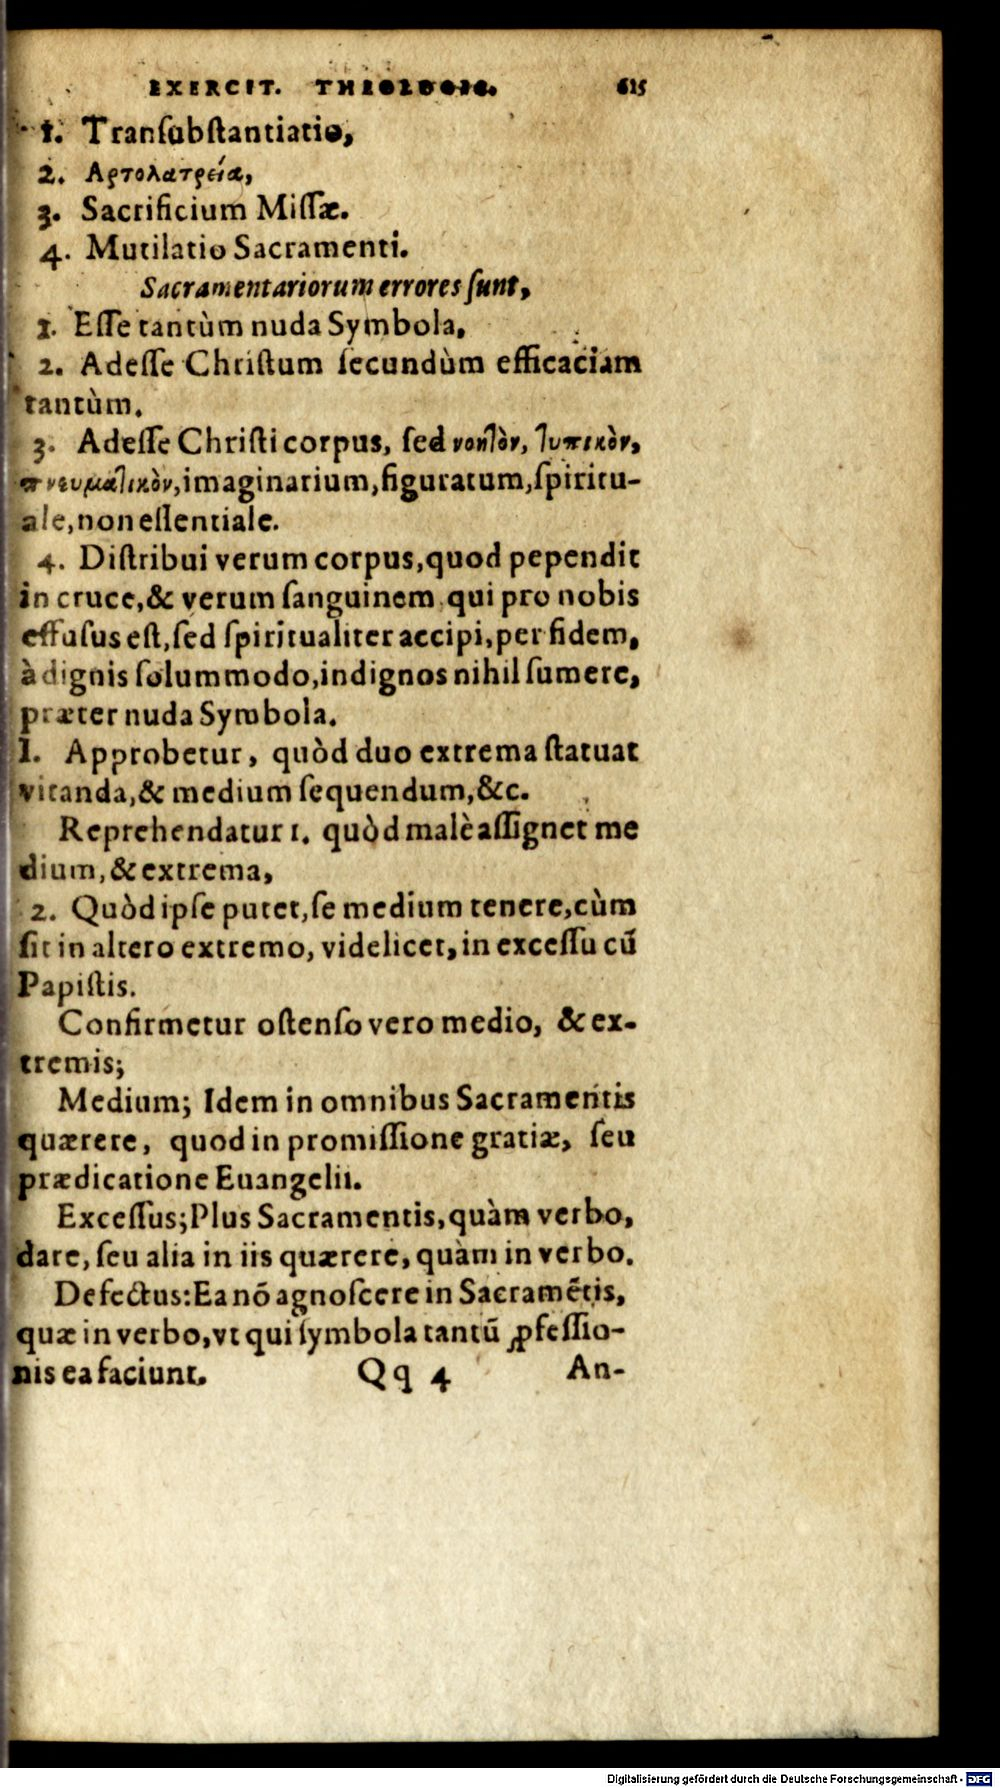 EXERCIT. THEOLOGIC. 615
1. Tranſubſtantiatio,
2. Αρτολατρεία,
3. Sacrificium Miſſæ.
4. Mutilatio Sacramenti.
Sacramentariorum errores ſunt,
1. Eſſe tantùm nuda Symbola.
2. Adeſſe Chriſtum ſecundùm efficaciam
tantùm.
3. Adeſſe Chriſti corpus, ſed νοητὸν, τυπικὸν,
πνευματικὸν, imaginarium, figuratum, ſpiritu-
ale, non eſſentiale.
4. Diſtribui verum corpus, quod pependit
in cruce, & verum ſanguinem qui pro nobis
effuſus eſt, ſed ſpiritualiter accipi, per fidem,
à dignis ſolummodo, indignos nihil ſumere,
præter nuda Symbola.
I. Approbetur, quòd duo extrema ſtatuat
vitanda, & medium ſequendum, &c.
Reprehendatur 1. quòd malè aſſignet me
dium, & extrema,
2. Quòd ipſe putet, ſe medium tenere, cùm
ſit in altero extremo, videlicet, in exceſſu cū
Papiſtis.
Confirmetur oſtenſo vero medio, & ex-
tremis;
Medium; Idem in omnibus Sacramentis
quærere, quod in promiſſione gratiæ, ſeu
prædicatione Euangelii.
Exceſſus; Plus Sacramentis, quàm verbo,
dare, ſeu alia in iis quærere, quàm in verbo.
Defectus: Ea nō agnoſcere in Sacramētis,
quæ in verbo, vt qui ſymbola tantū ꝓfeſſio-
nis ea faciunt.
Qq 4 An-
Digitalisierung gefördert durch die Deutsche Forschungsgemeinschaft - DFG